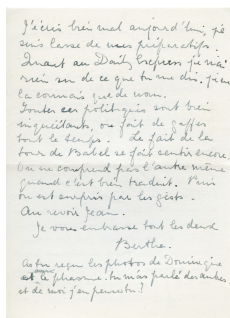 J'écris bien mal aujourd'hui, je
suis lasse de mes préparatifs.
Quant au Daily Express je n'ai
rien su de ce que tu me dis. j'en
le connais que de nom.
Toutes ces politiques sont bien
inquiétants, on fait de gaffes
tout le temps. Le fait de la
tour de Babel se fait sentir encore.
On ne comprend pas l'autre même
quand c'est bien traduit. Puis
on est compris par les gests.
Au revoir Jean.
Je vous embrasse tous les deux
Berthe.
As tu reçu les photos de Dominique
et le phasme. tu m'as parlé des autres
et de moi j'en pense tu?